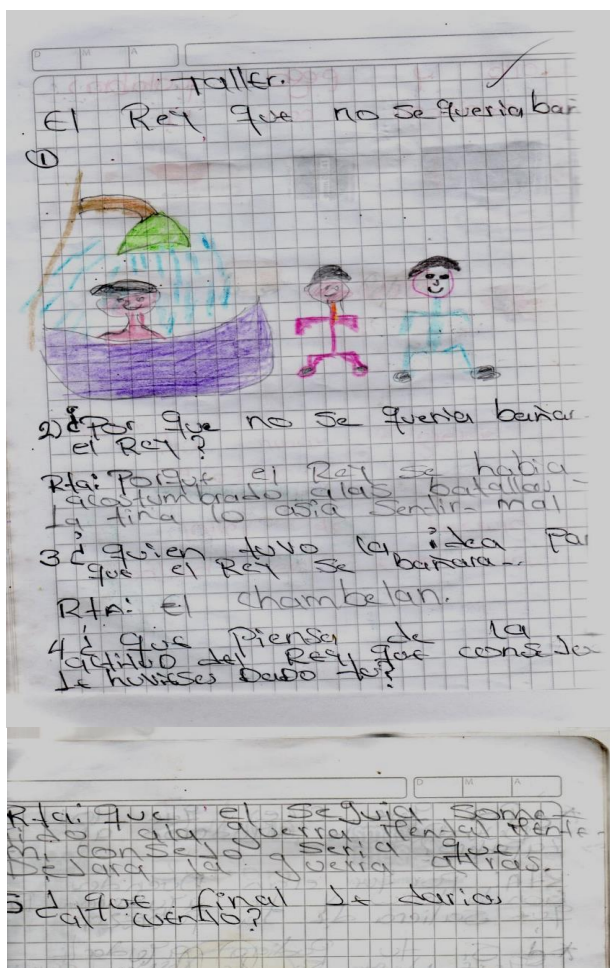 D M A
Taller.
El Rey que no se queria bañ
1
2) ¿Por que no se queria bañar
el Rey?
Rta: Porque el Rey se habia
acostumbrado alas batallas
la tina lo asia sentir mal
3 ¿quien tuvo la idea pa
que el Rey se bañara..
RtA: El chambelan.
4 ¿ que piensa de la
actitud del Rey que consejo
le huvieses DaDo tu?
D M A
Rta: que el seguia some-
tido ala guerra mental mente-
mi consejo seria que
Dejara la guerra atras.
5 ¿ que final le darias
al cuento?